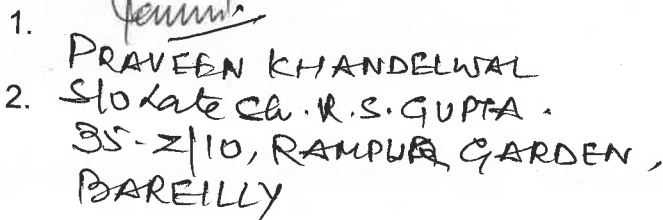 1.
PRAVEEN KHANDELWAL
2. S/o Late Ch. R.S. GUPTA.
35-Z/10, RAMPUR GARDEN,
BAREILLY